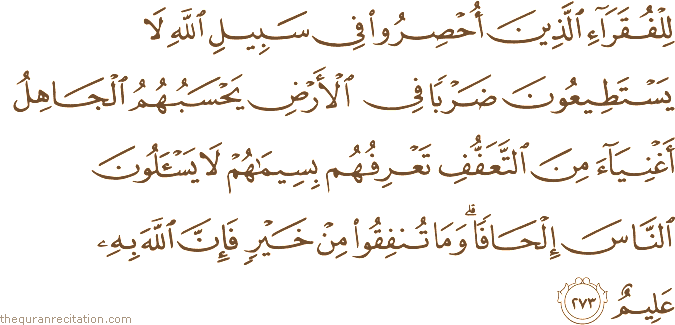 لِلْفُقَرَآءِ ٱلَّذِينَ أُحْصِرُوا۟ فِى سَبِيلِ ٱللَّهِ لَا
يَسْتَطِيعُونَ ضَرْبًا فِى ٱلْأَرْضِ يَحْسَبُهُمُ ٱلْجَاهِلُ
أَغْنِيَآءَ مِنَ ٱلتَّعَفُّفِ تَعْرِفُهُم بِسِيمَـٰهُمْ لَا يَسْـَٔلُونَ
ٱلنَّاسَ إِلْحَافًا ۗ وَمَا تُنفِقُوا۟ مِنْ خَيْرٍ فَإِنَّ ٱللَّهَ بِهِۦ
عَلِيمٌ ٢٧٣
thequranrecitation.com